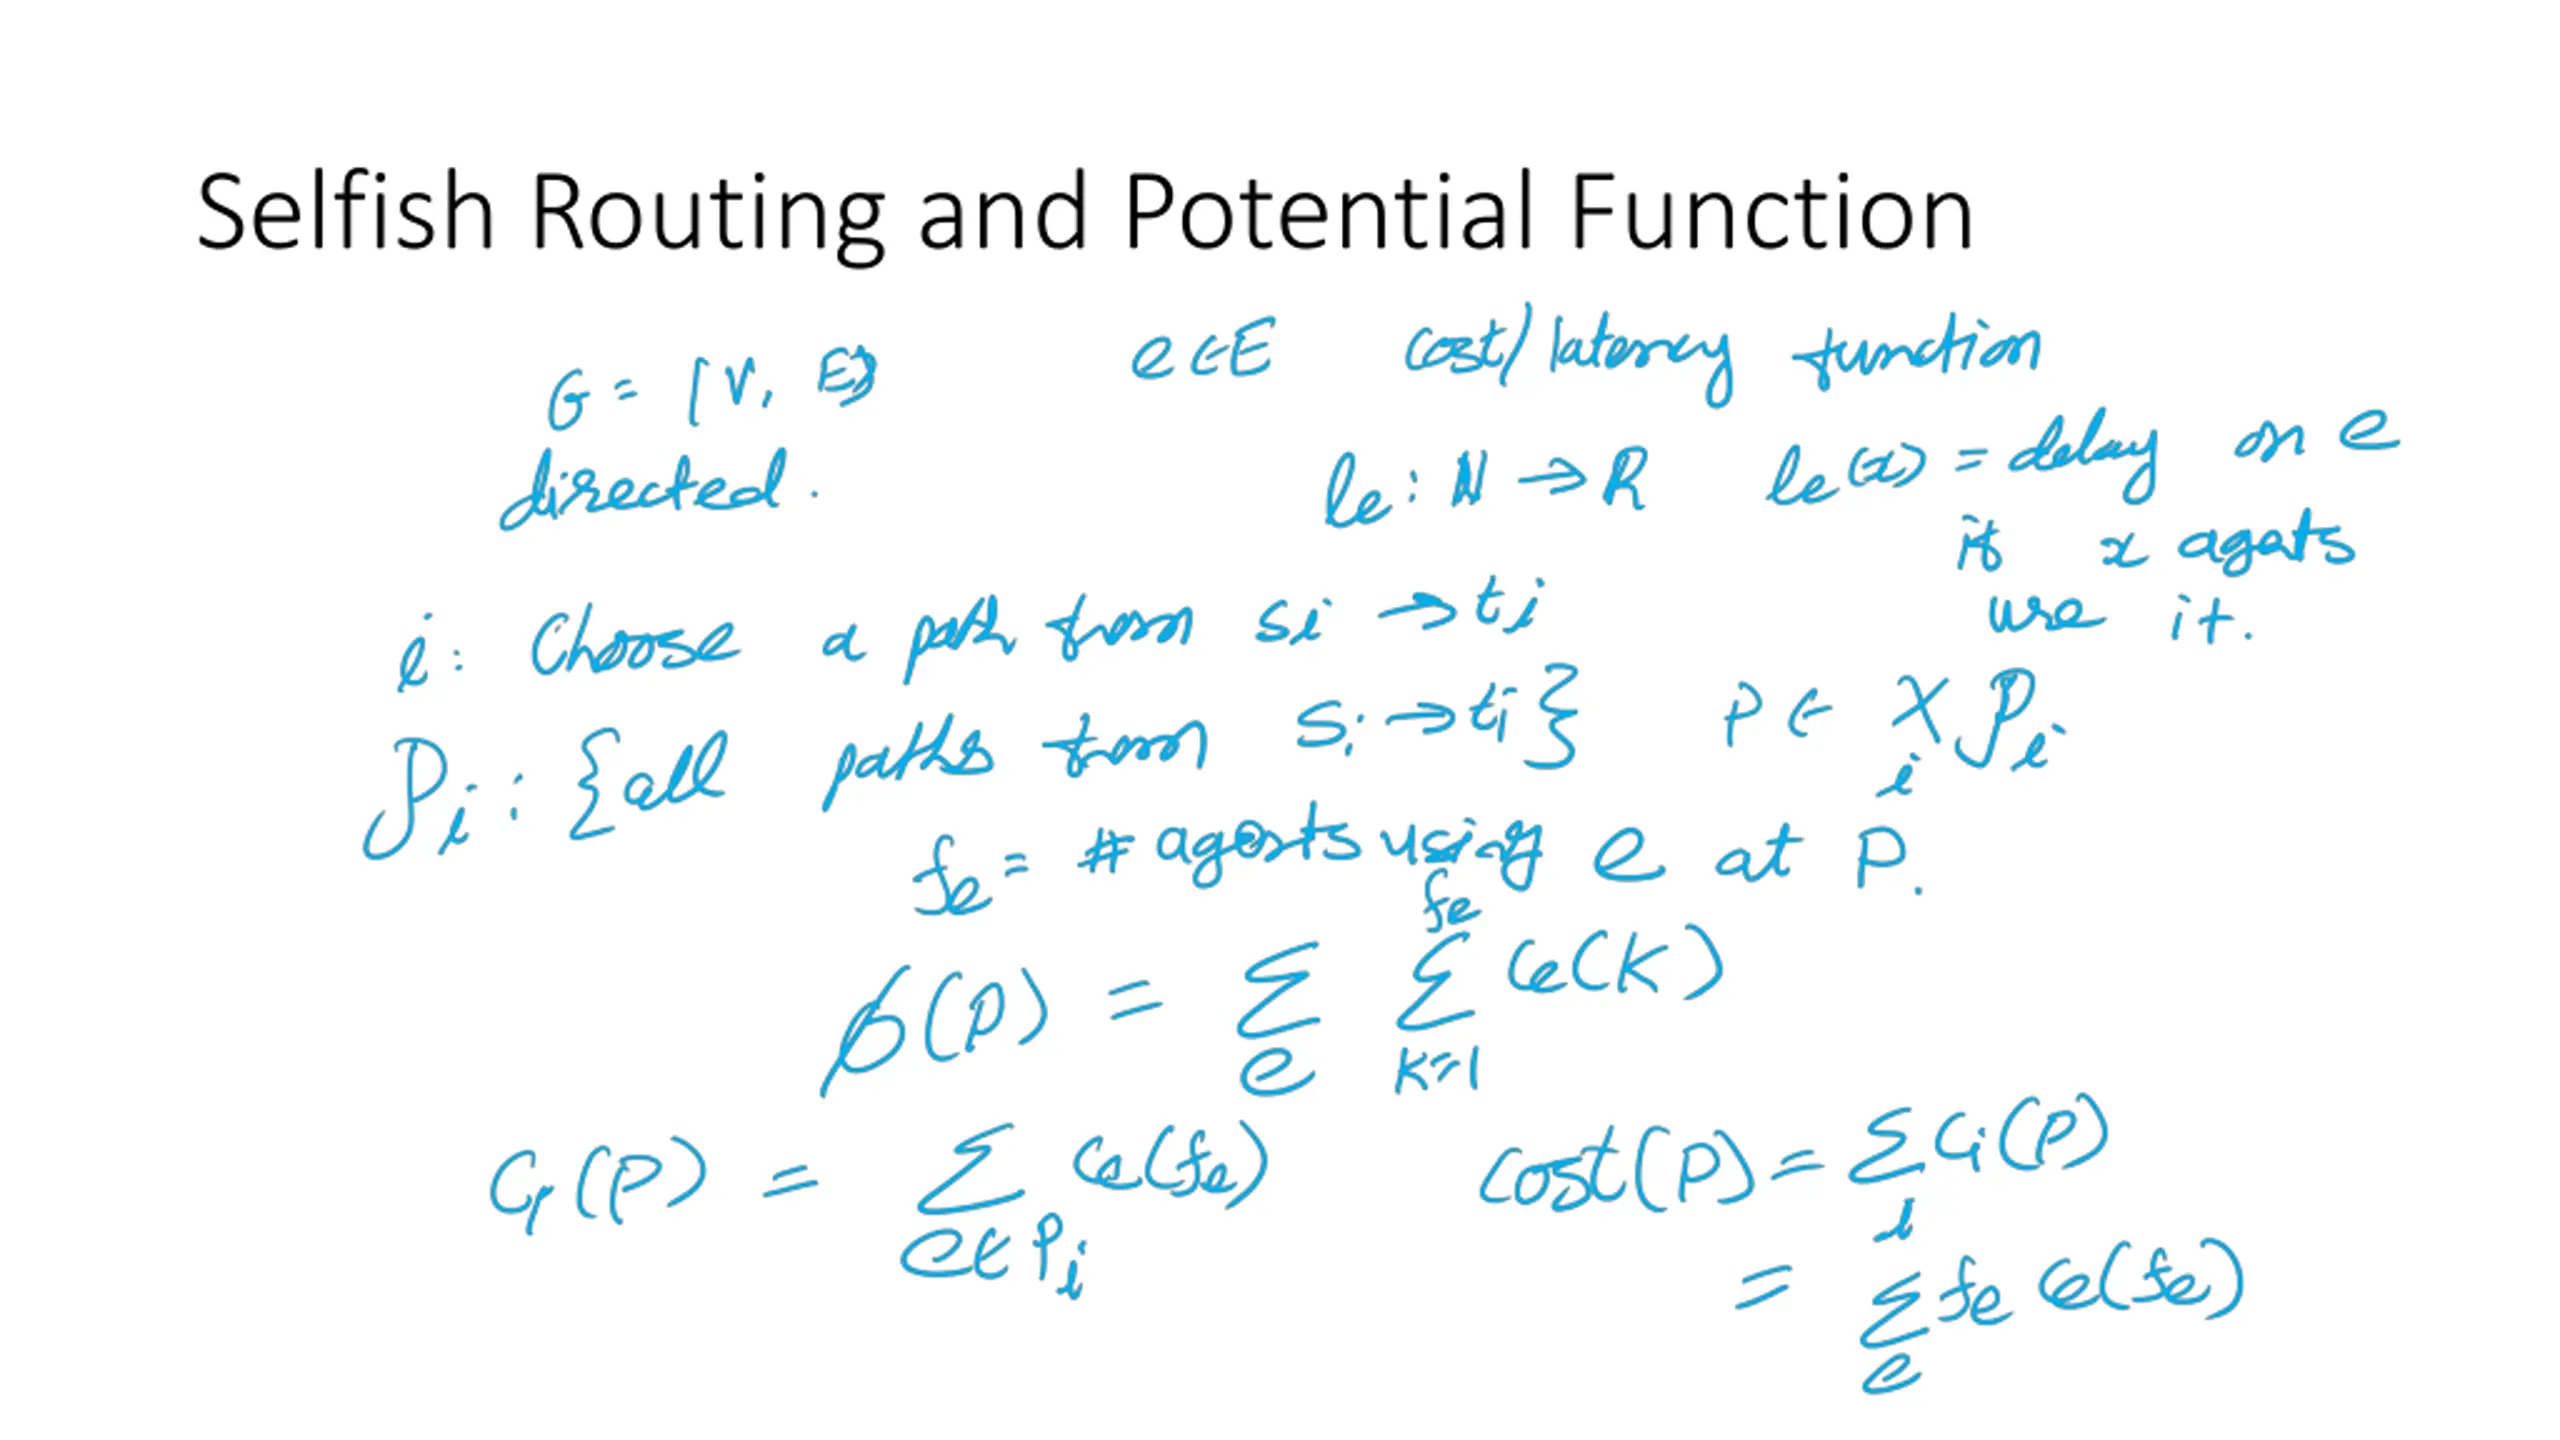 Selfish Routing and Potential Function
G = (V, E) e ∈ E cost/latency function
directed. le : N → R le(x) = delay on e
if x agents
use it.
i : Choose a path from si → ti
Pi : {all paths from si → ti} P ∈ X_i Pi
fe = # agents using e at P.
ϕ(P) = Σ_e Σ_{k=1}^{fe} Ce(k)
Ci(P) = Σ_{e∈Pi} Ce(fe) Cost(P) = Σ_i Ci(P)
= Σ_e fe Ce(fe)